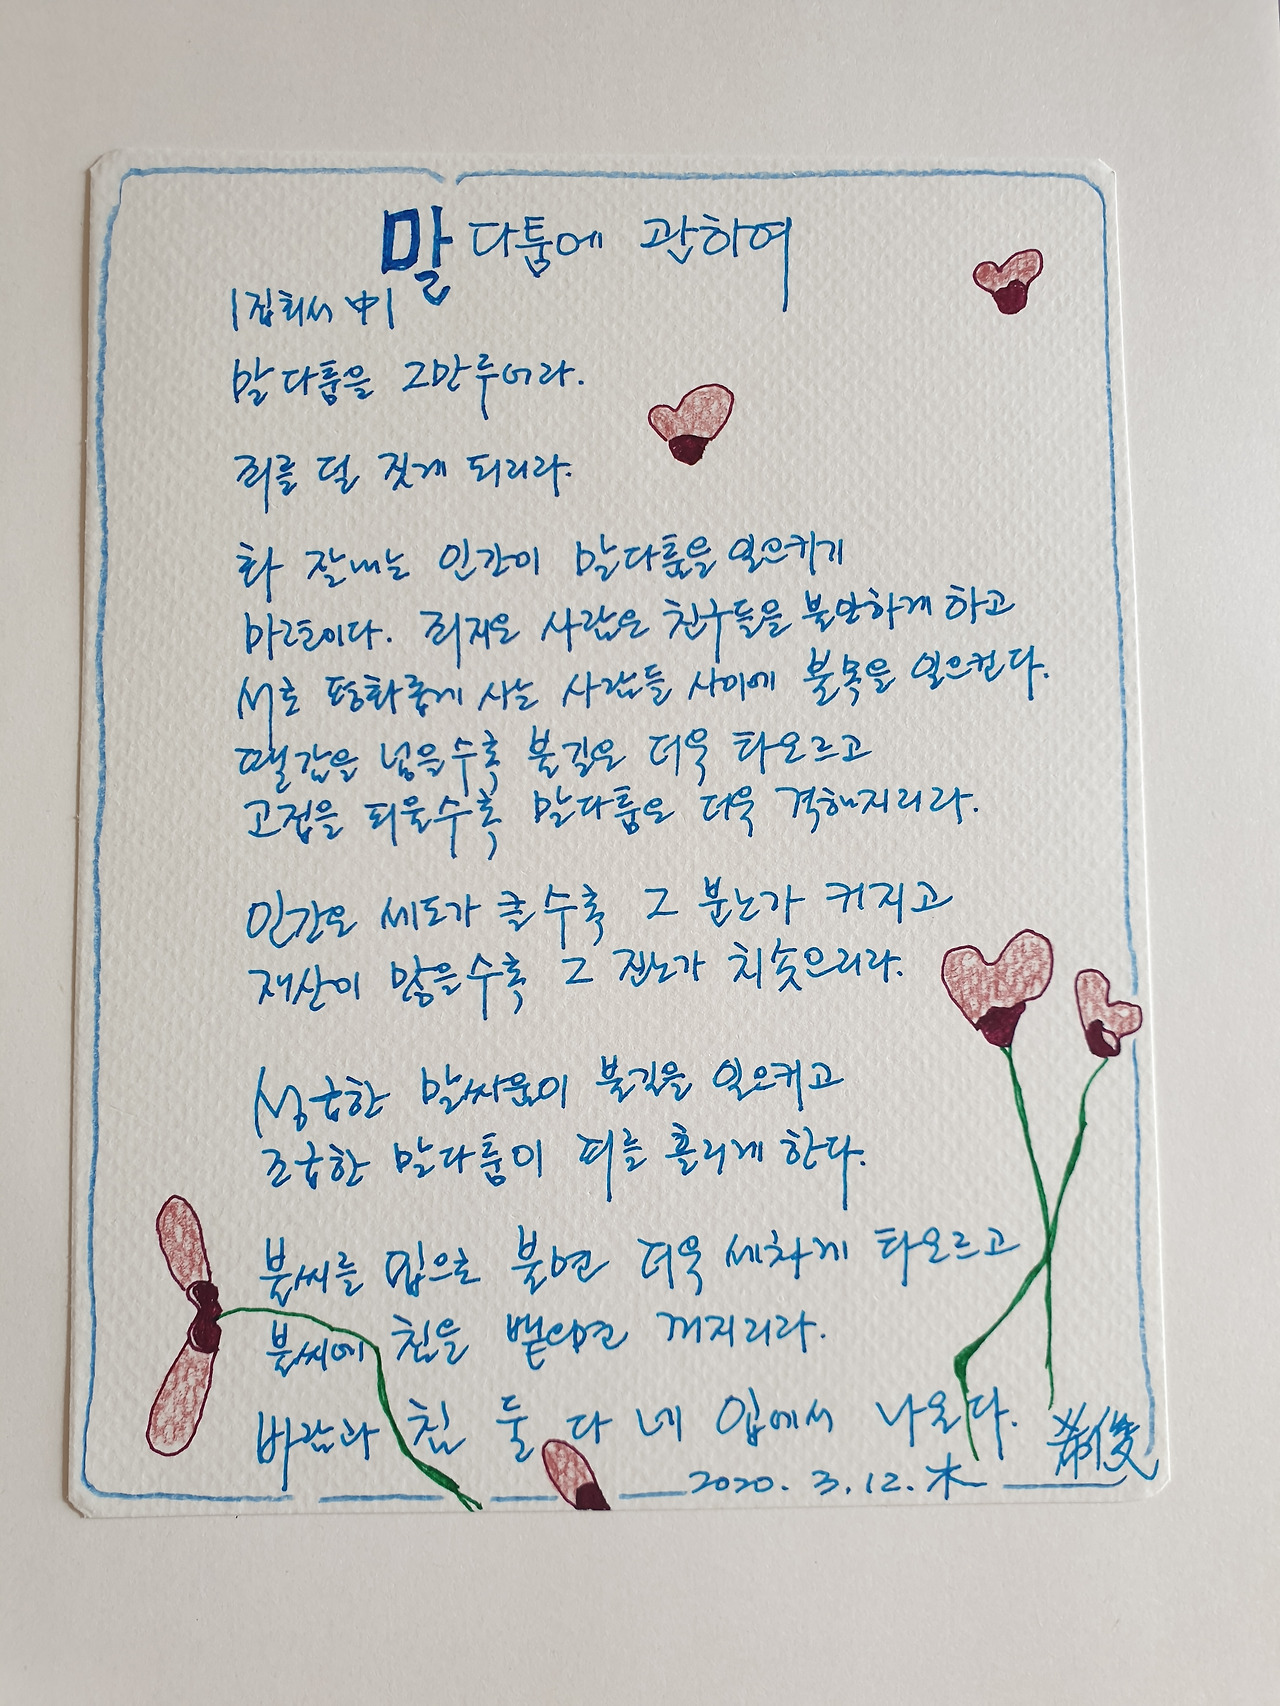 말다툼에 관하여
|집회서 中|
말다툼을 그만두어라.
죄를 덜 짓게 되리라.
화 잘내는 인간이 말다툼을 일으키기
마련이다. 죄지은 사람은 친구들을 불안하게 하고
서로 평화롭게 사는 사람들 사이에 불목을 일으킨다.
땔감을 넣을수록 불길은 더욱 타오르고
고집을 피울수록 말다툼은 더욱 격해지리라.
인간은 세도가 클수록 그 분노가 커지고
재산이 많을수록 그 진노가 치솟으리라.
성급한 말싸움이 불길을 일으키고
조급한 말다툼이 피를 흘리게 한다.
불씨를 입으로 불면 더욱 세차게 타오르고
불씨에 침을 뱉으면 꺼지리라.
바람과 침 둘 다 네 입에서 나온다.
希俊
2020. 3. 12. 木